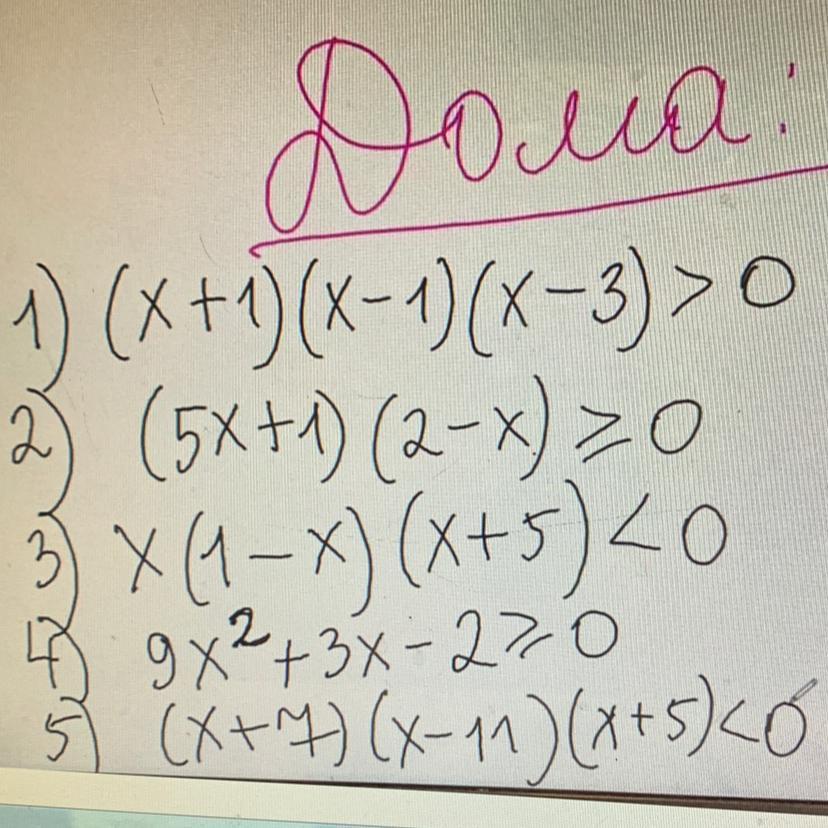 Дома:
1) (x+1)(x-1)(x-3)>0
2) (5x+1)(2-x)⩾0
3) x(1-x)(x+5)<0
4) 9x²+3x-2⩾0
5) (x+7)(x-11)(x+5)<0